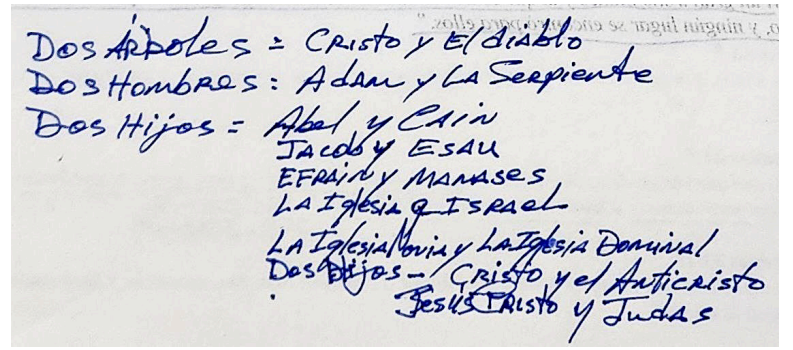 o, y ningún lugar se encontró para ellos."
Dos Árboles = Cristo y El diablo
Dos Hombres: Adam y La Serpiente
Dos Hijos = Abel y Cain
Jacob y Esau
Efrain y Manases
La Iglesia e Israel
La Iglesia Novia y La Iglesia Dominal
Dos Hijos - Cristo y el Anticristo
Jesus Cristo y Judas